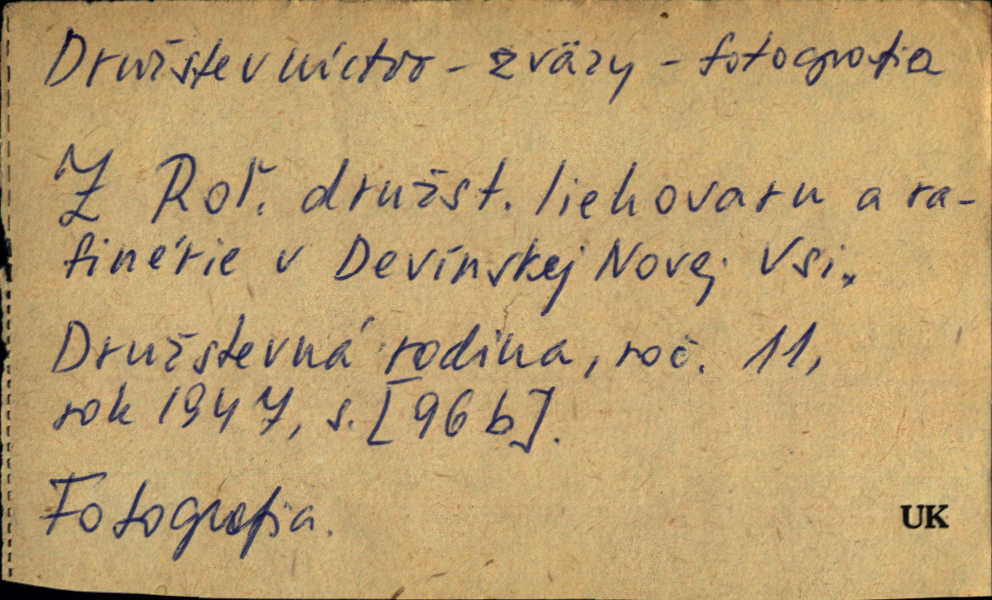 Družstevníctvo - zväzy - fotografia
Z Roľ. družst. liehovaru a ra-
finérie v Devínskej Novej Vsi.
Družstevná rodina, roč. 11,
rok 1947, s. [96 b].
Fotografia.
UK